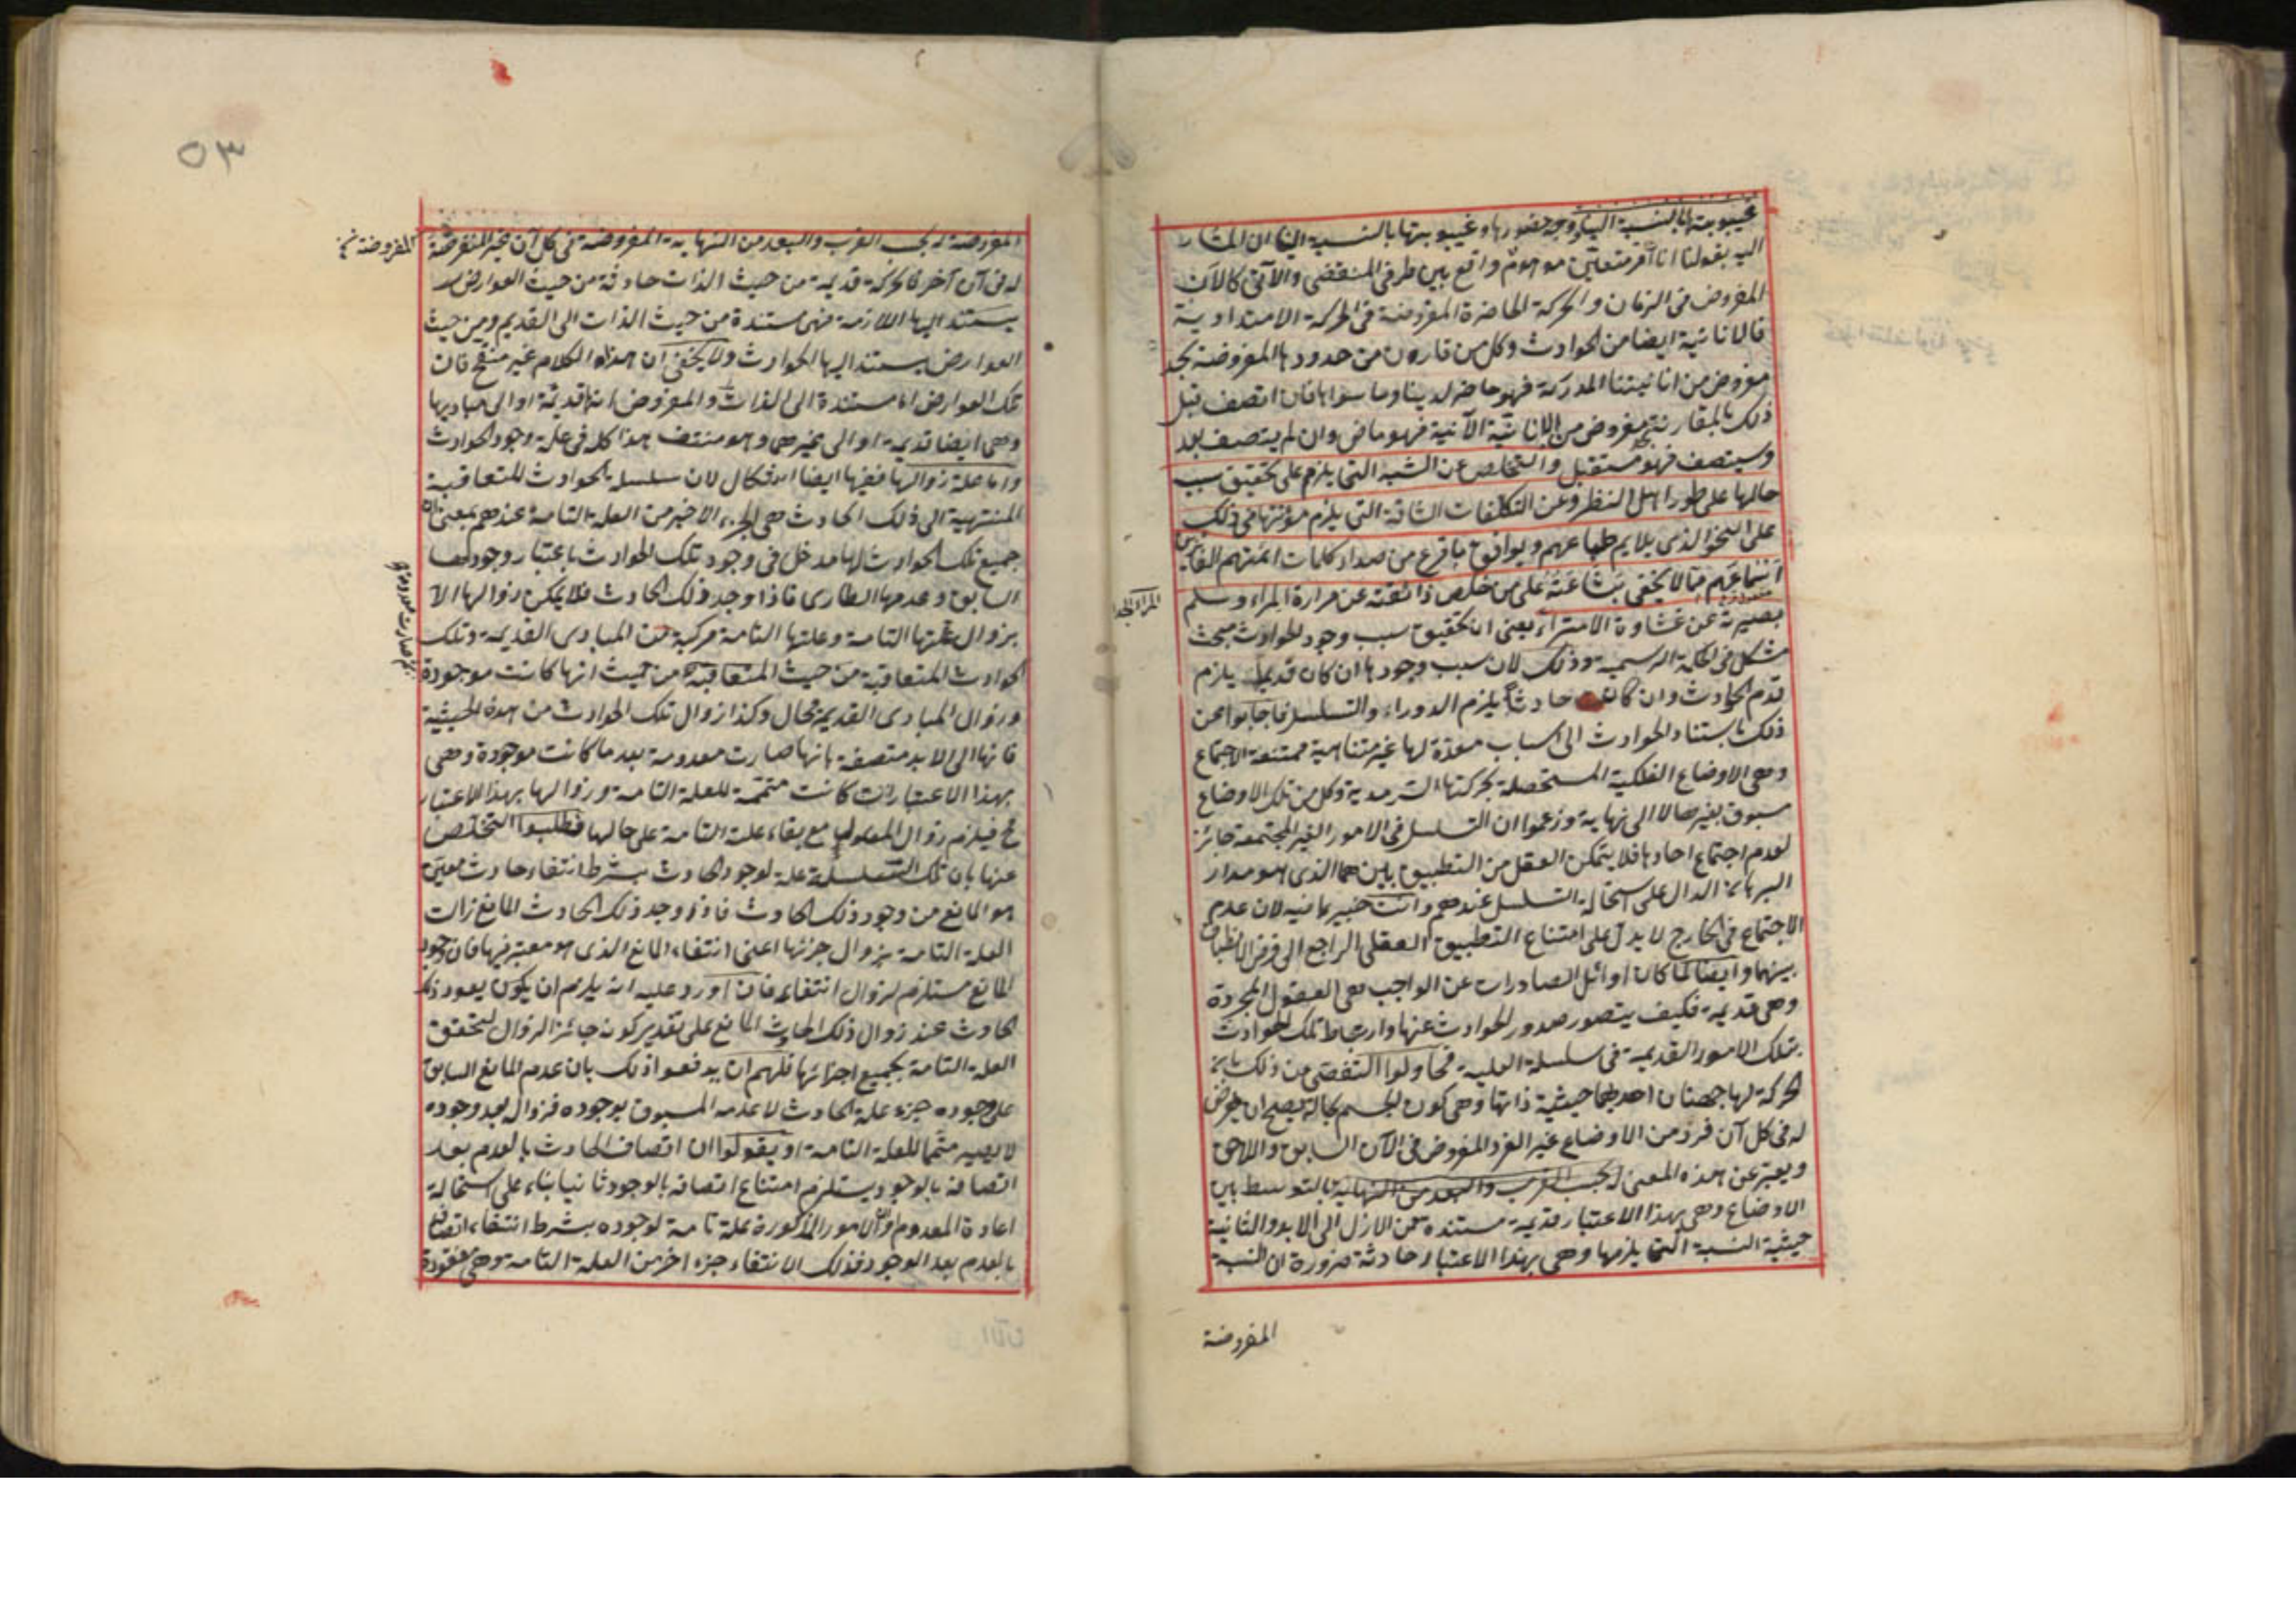 غيبوبتها بالنسبة الينا وجه حضورها وغيبوبتها بالنسبة الينا ان المشار
اليه بقولنا انا آخر متعين موهوم واقع بين طرفي المنقضى والآتى كالآن
المفروض فى الزمان والحركة الحاضرة المفروضة فى الحركة الامتدادية
فالانائية ايضا من الحوادث وكل من قارن من حدودها المفروضة بحد
مفروض من انانيتنا المدركة فهو حاضر لدينا وما سواها فان اتصف قبل
ذلك بالمقارنة بحد مفروض من الانائية الآنية فهو ماض وان لم يتصف بعد
وسيتصف فهو مستقبل والتخلص عن الشبه التى يلزم على تحقيق سبب
حالها على طور اهل النظر وعن التكلفات الشاقة التى يلزم مؤنتها فى ذلك
على النحو الذى يلايم طباعهم ويوافق ما قرع من صداء كلمات ائمتهم
اسماعهم مما لا يخفى بشاعته على من خلص ذائقته عن مرارة المراء وسلم
بصيرته عن غشاوة الامتراء يعنى ان تحقيق سبب وجود الحوادث مبحث
مشكل فى الحكمة الرسمية وذلك لان سبب وجودها ان كان قديما يلزم
قدم الحوادث وان كان حادثا يلزم الدور او التسلسل فاجابوا عن
ذلك باستناد الحوادث الى اسباب معدة لها غير متناهية ممتنعة الاجتماع
وهى الاوضاع الفلكية المستحصلة بحركتها السرمدية وكل من تلك الاوضاع
مسبوق بغيره لا الى نهاية وزعموا ان التسلسل فى الامور الغير المجتمعة جائز
لعدم اجتماع احادها فلا يتمكن العقل من التطبيق بينهما الذى هو مدار
البرهان الدال على استحالة التسلسل عندهم وانت خبير بما فيه لان عدم
الاجتماع فى الخارج لا يدل على امتناع التطبيق العقلى الراجع الى فرض الانطباق
بينهما وايضا لما كان اوائل الصادرات عن الواجب هى العقول المجردة
وهى قديمة فكيف يتصور صدور الحوادث عنها وارتباط تلك الحوادث
بتلك الامور القديمة فى سلسلة العلية فحاولوا التفصى من ذلك بان
الحركة لها جهتان احديهما حيثية ذاتها وهى كون الجسم بحالة يصح ان يفرض
له فى كل آن فرد من الاوضاع غير الفرد المفروض فى الآن السابق واللاحق
ويعبر عن هذه المعنى بحسب القرب والبعد من النهاية بالتوسط بين
الاوضاع وهى بهذا الاعتبار قديمة مستندة من الازل الى الابد والثانية
حيثية النسبة التى يلزمها وهى بهذا الاعتبار حادثة ضرورة ان النسبة
المفروضة
٥٣
المفروضة له بحسب القرب والبعد من النهاية المفروضة فى كل آن غير المفروضة
المفروضة
له فى آن آخر فالحركة قديمة من حيث الذات حادثة من حيث العوارض
يستند اليها اللازمة فهى مستندة من حيث الذات الى القديم ومن حيث
العوارض يستند اليها الحوادث ولا يخفى ان هذا الكلام غير منقح فان
تلك العوارض اما مستندة الى الذات والمفروض انها قديمة او الى مباديها
وهى ايضا قديمة او الى غيرهى وهو منتف هذا كله فى علة وجود الحوادث
واما علة زوالها ففيها ايضا اشكال لان سلسلة الحوادث المتعاقبة
المنتهية الى ذلك الحادث هى الجزء الاخير من العلة التامة عندهم بمعنى ان
جميع تلك الحوادث لها مدخل فى وجود تلك الحوادث باعتبار وجودها
السابق وعدمها الطارى فاذا وجد ذلك الحادث فلا يمكن زوالها الا
بزوال علتها التامة وعلتها التامة مركبة من المبادى القديمة وتلك
الحوادث المتعاقبة من حيث المتعاقبة من حيث انها كانت موجودة
وزوال المبادى القديمة محال وكذا زوال تلك الحوادث من هذه الحيثية
فانها الى الابد متصفة بانها صارت معدومة بعد ما كانت موجودة وهى
بهذا الاعتبار كانت متممة للعلة التامة وزوالها بهذا الاعتبار
مح فيلزم زوال المعلول مع بقاء علته التامة على حالها فطلبوا التخلص
عنها بان تلك السلسلة علة لوجود الحادث بشرط انتفاء حادث معين
هو المانع من وجود ذلك الحادث فاذا وجد ذلك الحادث المانع زالت
العلة التامة بزوال جزئها اعنى انتفاء المانع الذى هو معتبر فيها فان وجود
المانع مستلزم لزوال انتفائه فان اورد عليه انه يلزم ان يكون يعود ذلك
الحادث عند زوال ذلك الحادث المانع على تقدير كونه جائز الزوال لتحقق
العلة التامة بجميع اجزائها فلهم ان يدفعوا ذلك بان عدم المانع السابق
على وجوده جزء علة الحادث لا عدمه المسبوق بوجوده فزواله بعد وجوده
لا يصير متمما للعلة التامة او يقولوا ان اتصاف الحادث بالعدم بعد
اتصافه بالوجود يستلزم امتناع اتصافه بالوجود ثانيا بناء على استحالة
اعادة المعدوم والامور المذكورة علة تامة لوجوده بشرط انتفاء اتصافه
بالعدم بعد الوجود فذلك الانتفاء جزء اخر من العلة التامة وهى مفقودة